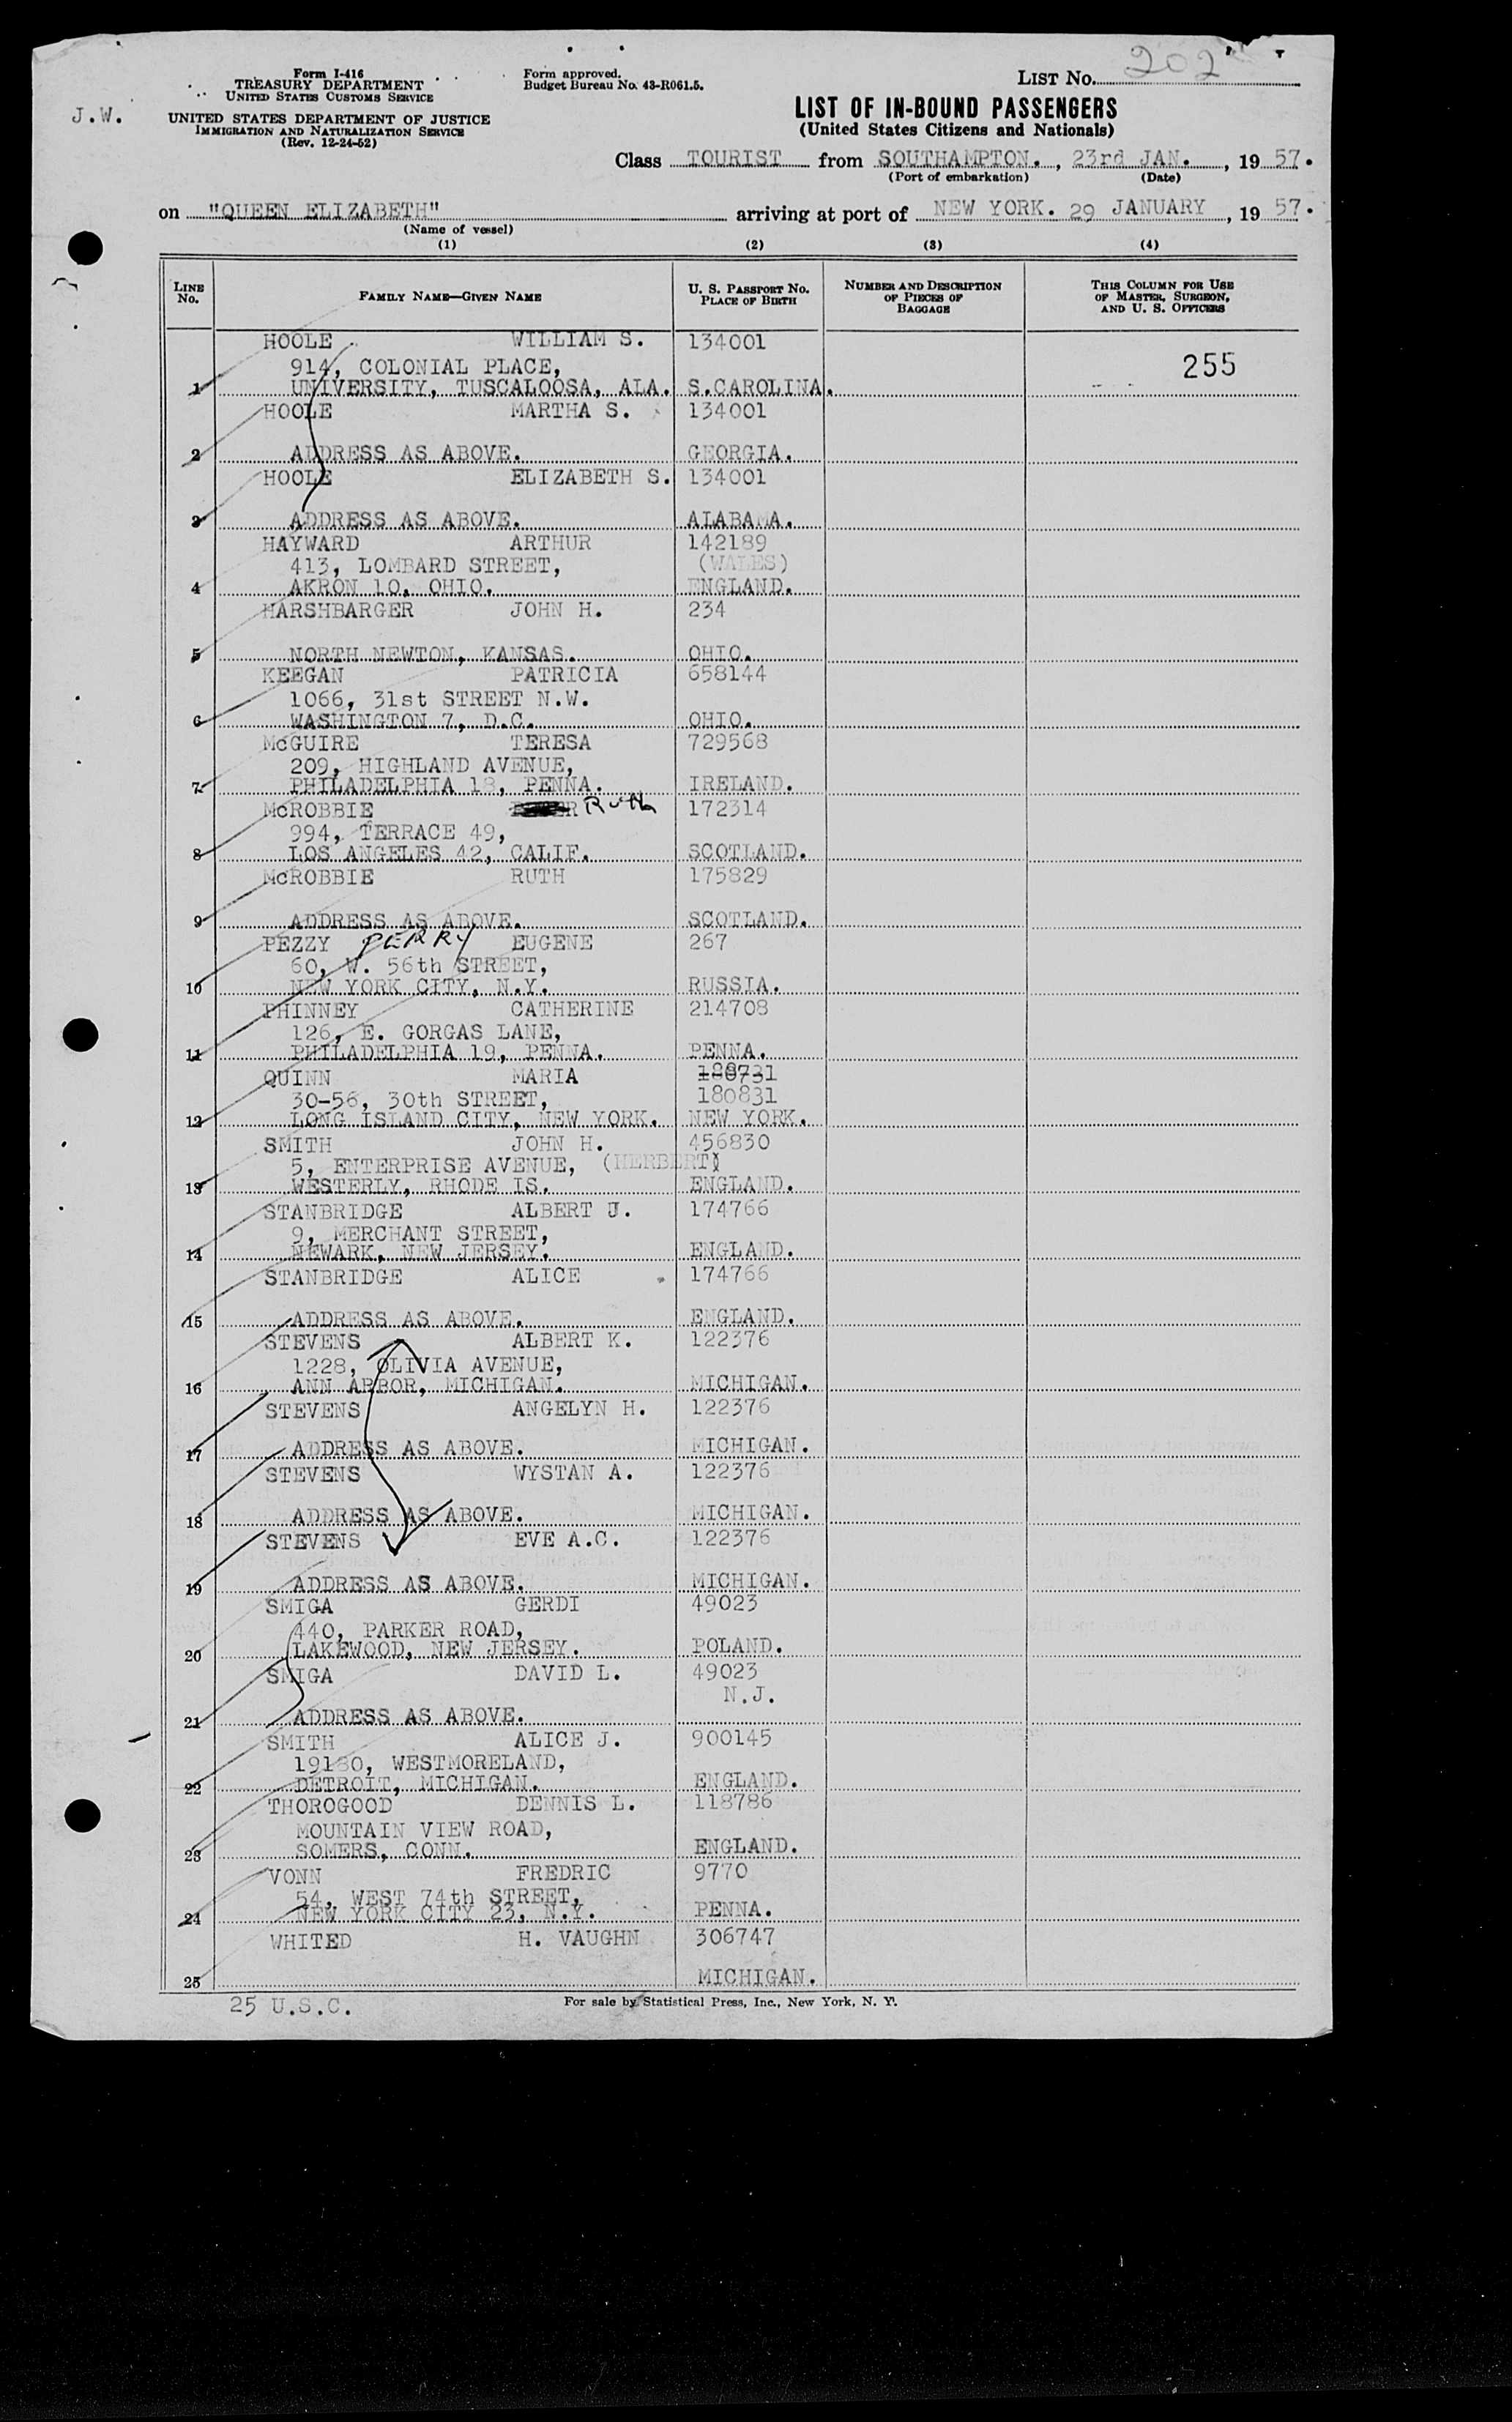 202
Form I-416
TREASURY DEPARTMENT
UNITED STATES CUSTOMS SERVICE
Form approved.
Budget Bureau No. 43-R061.5.
LIST No.
J.W.
UNITED STATES DEPARTMENT OF JUSTICE
IMMIGRATION AND NATURALIZATION SERVICE
(Rev. 12-24-52)
LIST OF IN-BOUND PASSENGERS
(United States Citizens and Nationals)
Class TOURIST from SOUTHAMPTON. , 23rd JAN. , 19 57.
(Port of embarkation) (Date)
on "QUEEN ELIZABETH" arriving at port of NEW YORK. 29 JANUARY , 19 57.
(Name of vessel)
(1) (2) (3) (4)
LINE No. FAMILY NAME—GIVEN NAME U. S. PASSPORT No. PLACE OF BIRTH NUMBER AND DESCRIPTION OF PIECES OF BAGGAGE THIS COLUMN FOR USE OF MASTER, SURGEON, AND U. S. OFFICERS
HOOLE WILLIAM S. 134001
914, COLONIAL PLACE, 255
1 UNIVERSITY, TUSCALOOSA, ALA. S.CAROLINA.
HOOLE MARTHA S. 134001
2 ADDRESS AS ABOVE. GEORGIA.
HOOLE ELIZABETH S. 134001
3 ADDRESS AS ABOVE. ALABAMA.
HAYWARD ARTHUR 142189
413, LOMBARD STREET, (WALES)
4 AKRON 10, OHIO. ENGLAND.
HARSHBARGER JOHN H. 234
5 NORTH NEWTON, KANSAS. OHIO.
KEEGAN PATRICIA 658144
1066, 31st STREET N.W.
6 WASHINGTON 7, D.C. OHIO.
McGUIRE TERESA 729568
209, HIGHLAND AVENUE,
7 PHILADELPHIA 18, PENNA. IRELAND.
McROBBIE Ruth 172314
994, TERRACE 49,
8 LOS ANGELES 42, CALIF. SCOTLAND.
McROBBIE RUTH 175829
9 ADDRESS AS ABOVE. SCOTLAND.
PEZZY PERRY EUGENE 267
60, W. 56th STREET,
10 NEW YORK CITY, N.Y. RUSSIA.
PHINNEY CATHERINE 214708
126, E. GORGAS LANE,
11 PHILADELPHIA 19, PENNA. PENNA.
QUINN MARIA 180731
30-56, 30th STREET, 180831
12 LONG ISLAND CITY, NEW YORK. NEW YORK.
SMITH JOHN H. 456830
5, ENTERPRISE AVENUE, (HERBERT)
13 WESTERLY, RHODE IS. ENGLAND.
STANBRIDGE ALBERT J. 174766
9, MERCHANT STREET,
14 NEWARK, NEW JERSEY. ENGLAND.
STANBRIDGE ALICE 174766
15 ADDRESS AS ABOVE. ENGLAND.
STEVENS ALBERT K. 122376
1228, OLIVIA AVENUE,
16 ANN ARBOR, MICHIGAN. MICHIGAN.
STEVENS ANGELYN H. 122376
17 ADDRESS AS ABOVE. MICHIGAN.
STEVENS WYSTAN A. 122376
18 ADDRESS AS ABOVE. MICHIGAN.
STEVENS EVE A.C. 122376
19 ADDRESS AS ABOVE. MICHIGAN.
SMIGA GERDI 49023
440, PARKER ROAD,
20 LAKEWOOD, NEW JERSEY. POLAND.
SMIGA DAVID L. 49023
N.J.
21 ADDRESS AS ABOVE.
SMITH ALICE J. 900145
19180, WESTMORELAND,
22 DETROIT, MICHIGAN. ENGLAND.
THOROGOOD DENNIS L. 118786
MOUNTAIN VIEW ROAD,
23 SOMERS, CONN. ENGLAND.
VONN FREDRIC 9770
54, WEST 74th STREET,
24 NEW YORK CITY 23, N.Y. PENNA.
WHITED H. VAUGHN 306747
25 MICHIGAN.
25 U.S.C. For sale by Statistical Press, Inc., New York, N. Y.